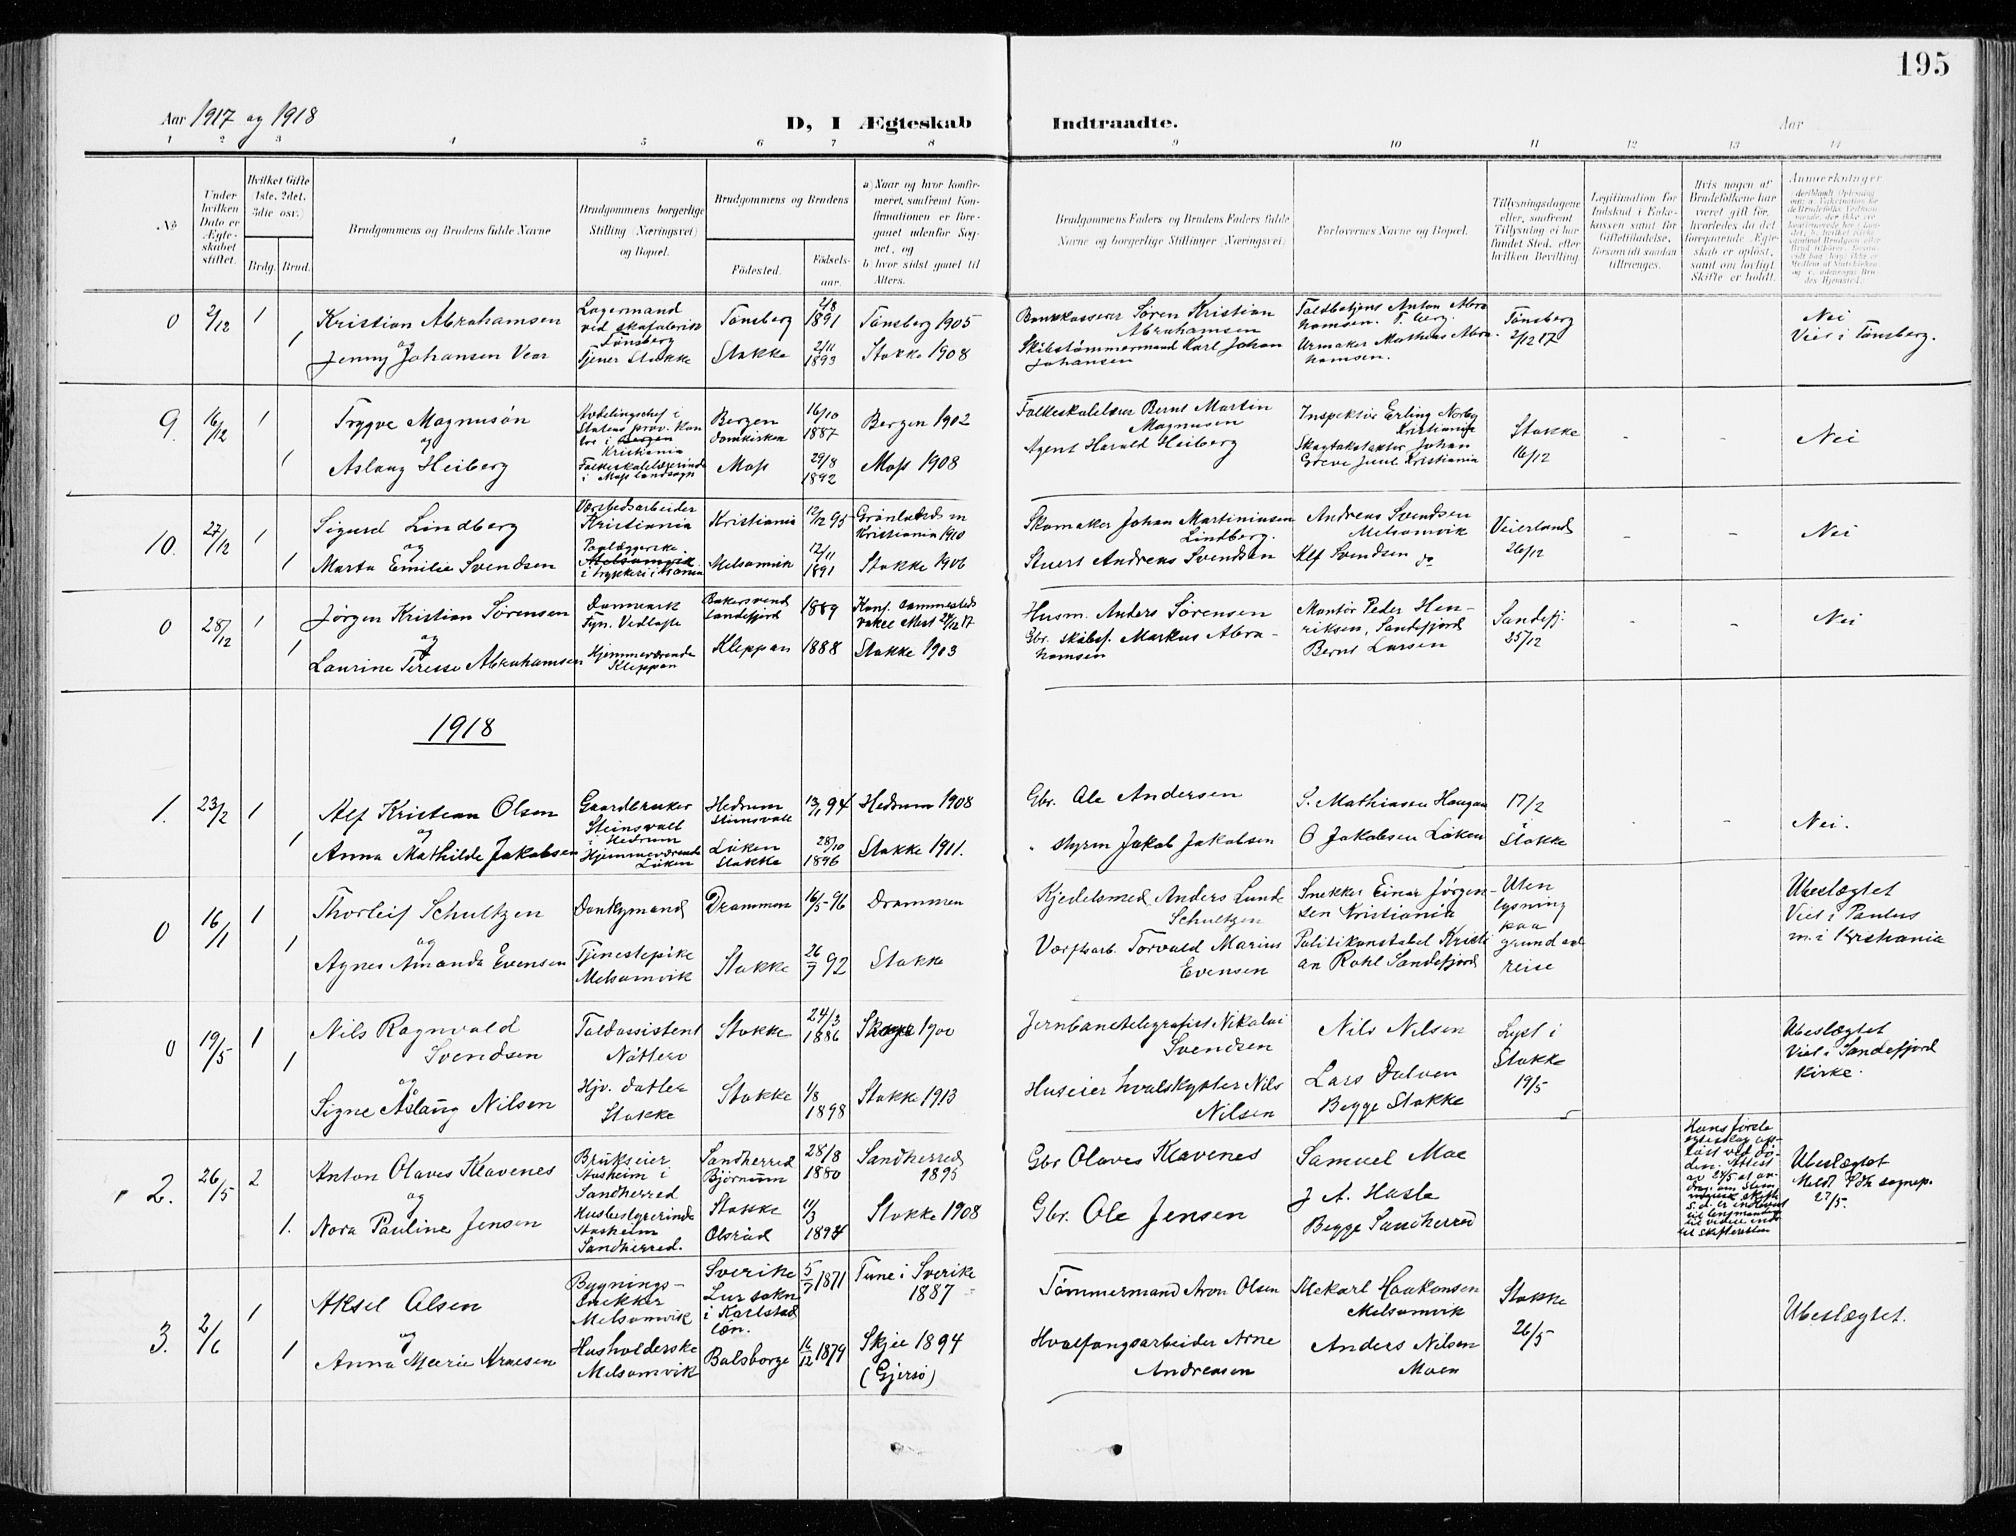 195
Aar 1917 og 1918
D, I Ægteskab
Indtraadte.
Aar
1 2 3 4 5 6 7 8 9 10 11 12 13 14
No
Under hvilken Dato er Ægteskabet stiftet.
Hvilket Gifte 1ste, 2det, 3die osv.)
Brdg.
Brud.
Brudgommens og Brudens fulde Navne
Brudgommens borgerlige Stilling (Næringsvei) og Bopæl.
Brudgommens og Brudens
Fødested.
Fødselsaar.
a) Naar og hvor konfirmeret, saafremt Konfirmationen er foregaaet udenfor Sognet, og
b) hvor sidst gaaet til Alters.
Brudgommens Faders og Brudens Faders fulde Navne og borgerlige Stillinger (Næringsvei)
Forlovernes Navne og Bopæl.
Tillysningsdagene eller, saafremt Tillysning ei har fundet Sted, efter hvilken Bevilling.
Legitimation for Indskud i Enkekassen samt for Giftetilladelse, forsaavidt saadan tiltrænges.
Hvis nogen af Brudefolkene har været gift før, hvorledes da det foregaaende Ægteskab er opløst, samt om lovligt Skifte er holdt.
Anmærkninger
0 2/12 1
Kristian Abrahamsen
og
1 Jenny Johansen Vear
Lagermand
ved skofabrik
Tønsberg
Tjener Stokke
Tønsberg
Stokke
2/8 1891
2/11 1893
Tønsberg 1905
Stokke 1908
Bankkasserer Søren Kristian
Abrahamsen
Skibstømmermand Karl Johan
Johansen
Toldbetjent Anton Abra
hamsen. T.berg.
Urmaker Mathias Abra-
hamsen.
Tønsberg
2/12 17
Nei
Viet i Tønsberg.
9. 16/12 1
Trygve Magnusøn
og
1 Aslaug Heiberg
Avdelingschef i
Statens prov. Kon
tor i Bergen
Kristiania
Folkeskolelærerinde
i Moss landsogn
Bergen
Domkirken
Moss
16/10 1887
29/8 1892
Bergen 1902
Moss 1908
Folkeskolelærer Bernt Martin
Magnusen
Agent Harald Heiberg
Inspektør Erling Norby
Kristiania
Skogtakstaktor Johan
Greve Juul Kristiania
Stokke
16/12
- -
Nei
10. 27/12 1
Sigurd Lindberg
og
1 Marta Emilie Svendsen
Værstedsarbeider
Kristiania
Paalæggerske.
Melsomvik
i trykkeri i Krania
Kristiania
Melsomvik
12/12 95
12/11 1891
Grønlands m
Kristiania 1910
Stokke 1906
Skomaker Johan Martiniusen
Lindberg.
Stuert Andreas Svendsen
Andreas Svendsen
Melsomvik
Alf Svendsen do
Veierland
26/12
- -
Nei
0 28/12 1
Jørgen Kristian Sørensen
og
1 Laurine Terese Abrahamsen
Danmark
Fyn. Vedlofte
Hjemmeværende
Kleppan
Bakersvend
Sandefjord
Kleppan
1889
1888
Stokke 1903
Husm. Anders Sørensen
Gbr. skibsf. Markus Abra-
hamsen
Montør Peder Hen-
riksen, Sandefjord
Bernt Larsen
Sandefj.
25/12
- -
Nei
1918
1. 23/2 1
Alf Kristian Olsen
og
1 Anna Mathilde Jakobsen
Gaardbruker
Steinsvalt
i Hedrum
Hjemmeværende
Løken
Hedrum
Steinsvalt
Løken
Stokke
13/1 94
28/10 1896
Hedrum 1908
Stokke 1911.
Gbr. Ole Andersen
" styrm Jakob Jakobsen
S. Mathiasen Haugan
O Jakobsen Løken
17/2
i
Stokke
- -
Nei.
0 16/1 1
Thorleif Schultzen
og
1 Agnes Amanda Evensen
Donkymand
Tjenestepike
Melsomvik
Drammen
Stokke
16/5-96
26/7 92
Drammen
Stokke
Kjedelsmed Anders Lunde
Schultzen
Værftsarb. Torvald Marius
Evensen
Snekker Einar Jørgen-
sen Kristiania
Politikonstabel Kristi
an Rohl Sandefjord
Uten
lysning
paa
grund av
reise
Ubeslægtet
Viet i Paulus
m. i Kristiania
0 19/5 1
Nils Ragnvald
Svendsen
og
1 Signe Aslaug Nilsen
Toldassistent
Nøtterø
Hjv. datter
Stokke
Stokke
Stokke
24/3 1886
1/8 1898
Skoger 1900
Stokke 1913
Jernbanetelegrafist Nikolai
Svendsen
Huseier hvalskytter Nils
Nilsen
Nils Nilsen
Lars Dalven
Begge Stokke
Lyst i
Stokke
19/5
Ubeslægtet
Viet i Sandefjord
Kirke.
2. 26/5 2
Anton Olaves Klavenes
og
1. Nora Pauline Jensen
Brukseier
Stasheim i
Sandherred
Husbestyrerinde
Stasheim
Sandherred.
Sandherred
Bjørnum
Stokke
Olsrød
28/8 1880
11/3 1894
Sandherred
1895
Stokke 1908
Gbr Olaves Klavenes
Gbr. Ole Jensen
Samuel Moe
J A. Hasle
Begge Sandherred
Hans første
egteskap op-
løst ved dø-
den. Attest
av 24/5
til skifteretten
Ubeslægtet
Meldt Sdh sognep.
27/5.
3. 2/6 1
Aksel Olsen
og
1 Anna Marie Arnesen
Bygnings-
snekker
Melsomvik
Husholderske
Melsomvik
Sverike
Lur sokn
i Karlstad
læn.
Balsborge
5/7 1871
16/12 1879
Tune i Sverike
1887
Skjee 1894
(Gjersø)
Tømmermand Aron Olsen
Hvalfangsarbeider Arne
Andreasen
Mekarl Haakonsen
Melsomvik
Anders Nilsen
Moen
Stokke
26/5
Ubeslægtet.